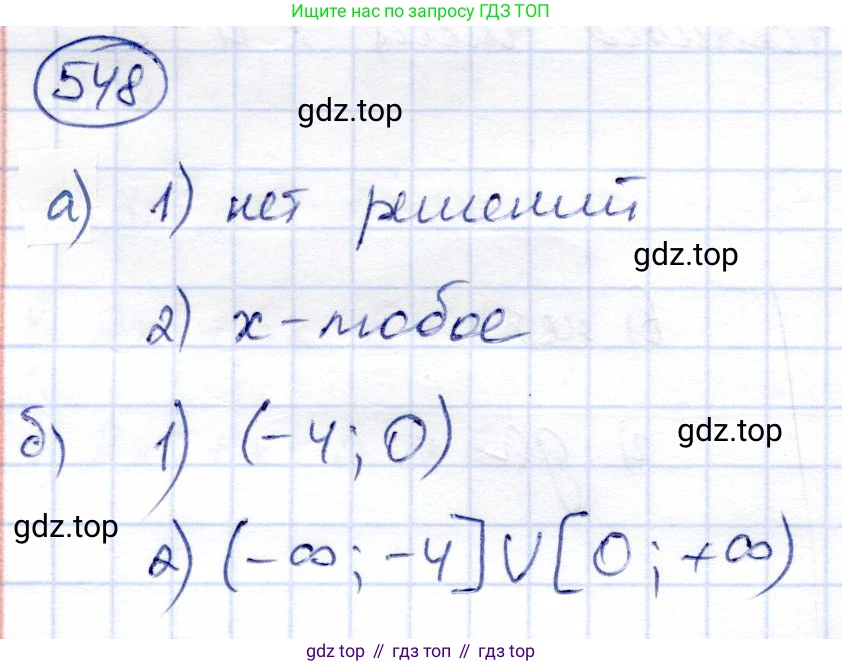 Ищите нас по запросу ГДЗ ТОП
548
gdz.top
а) 1) нет решений
gdz.top
2) x - любое
б) 1) (-4; 0)
gdz.top
gdz.top
2) (-∞; -4] ∪ [0; +∞)
gdz.top // гдз топ // gdz.top